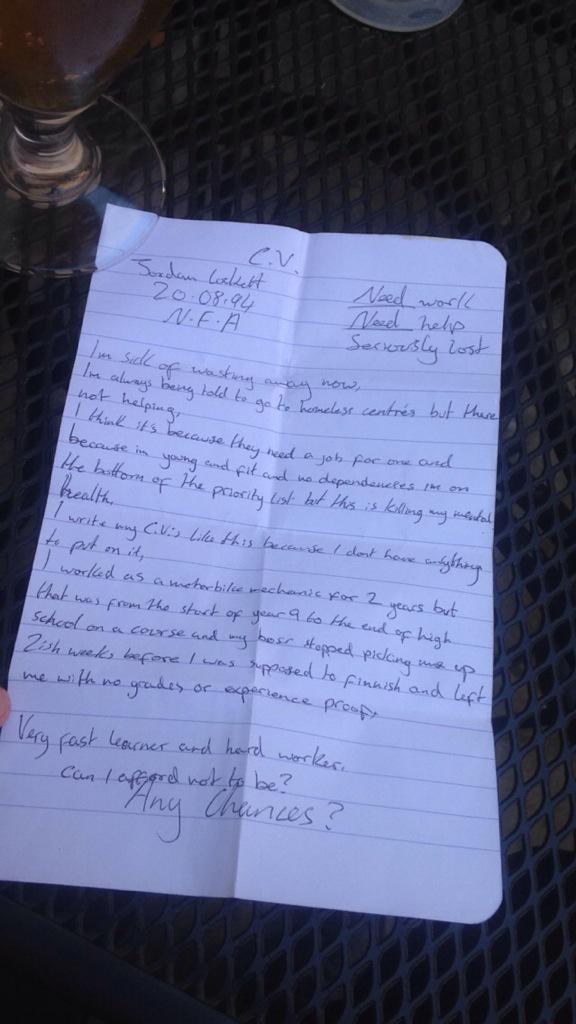 C.V.
Jordan Lockett
20.08.94
N.F.A
Need work
Need help
Seriously lost
Im sick of wasting away now,
Im always being told to go to homeless centres but there
not helping,
I think it's because they need a job for one and
because im young and fit and no dependencies im on
the bottom of the priority list but this is killing my mental
health.
I write my C.V.s like this because I dont have anything
to put on it,
I worked as a motorbike mechanic for 2 years but
that was from the start of year 9 to the end of high
school on a course and my boss stopped picking me up
2ish weeks before I was supposed to finnish and left
me with no grades or experience proof,
Very fast learner and hard worker.
can I afford not to be?
Any Chances?